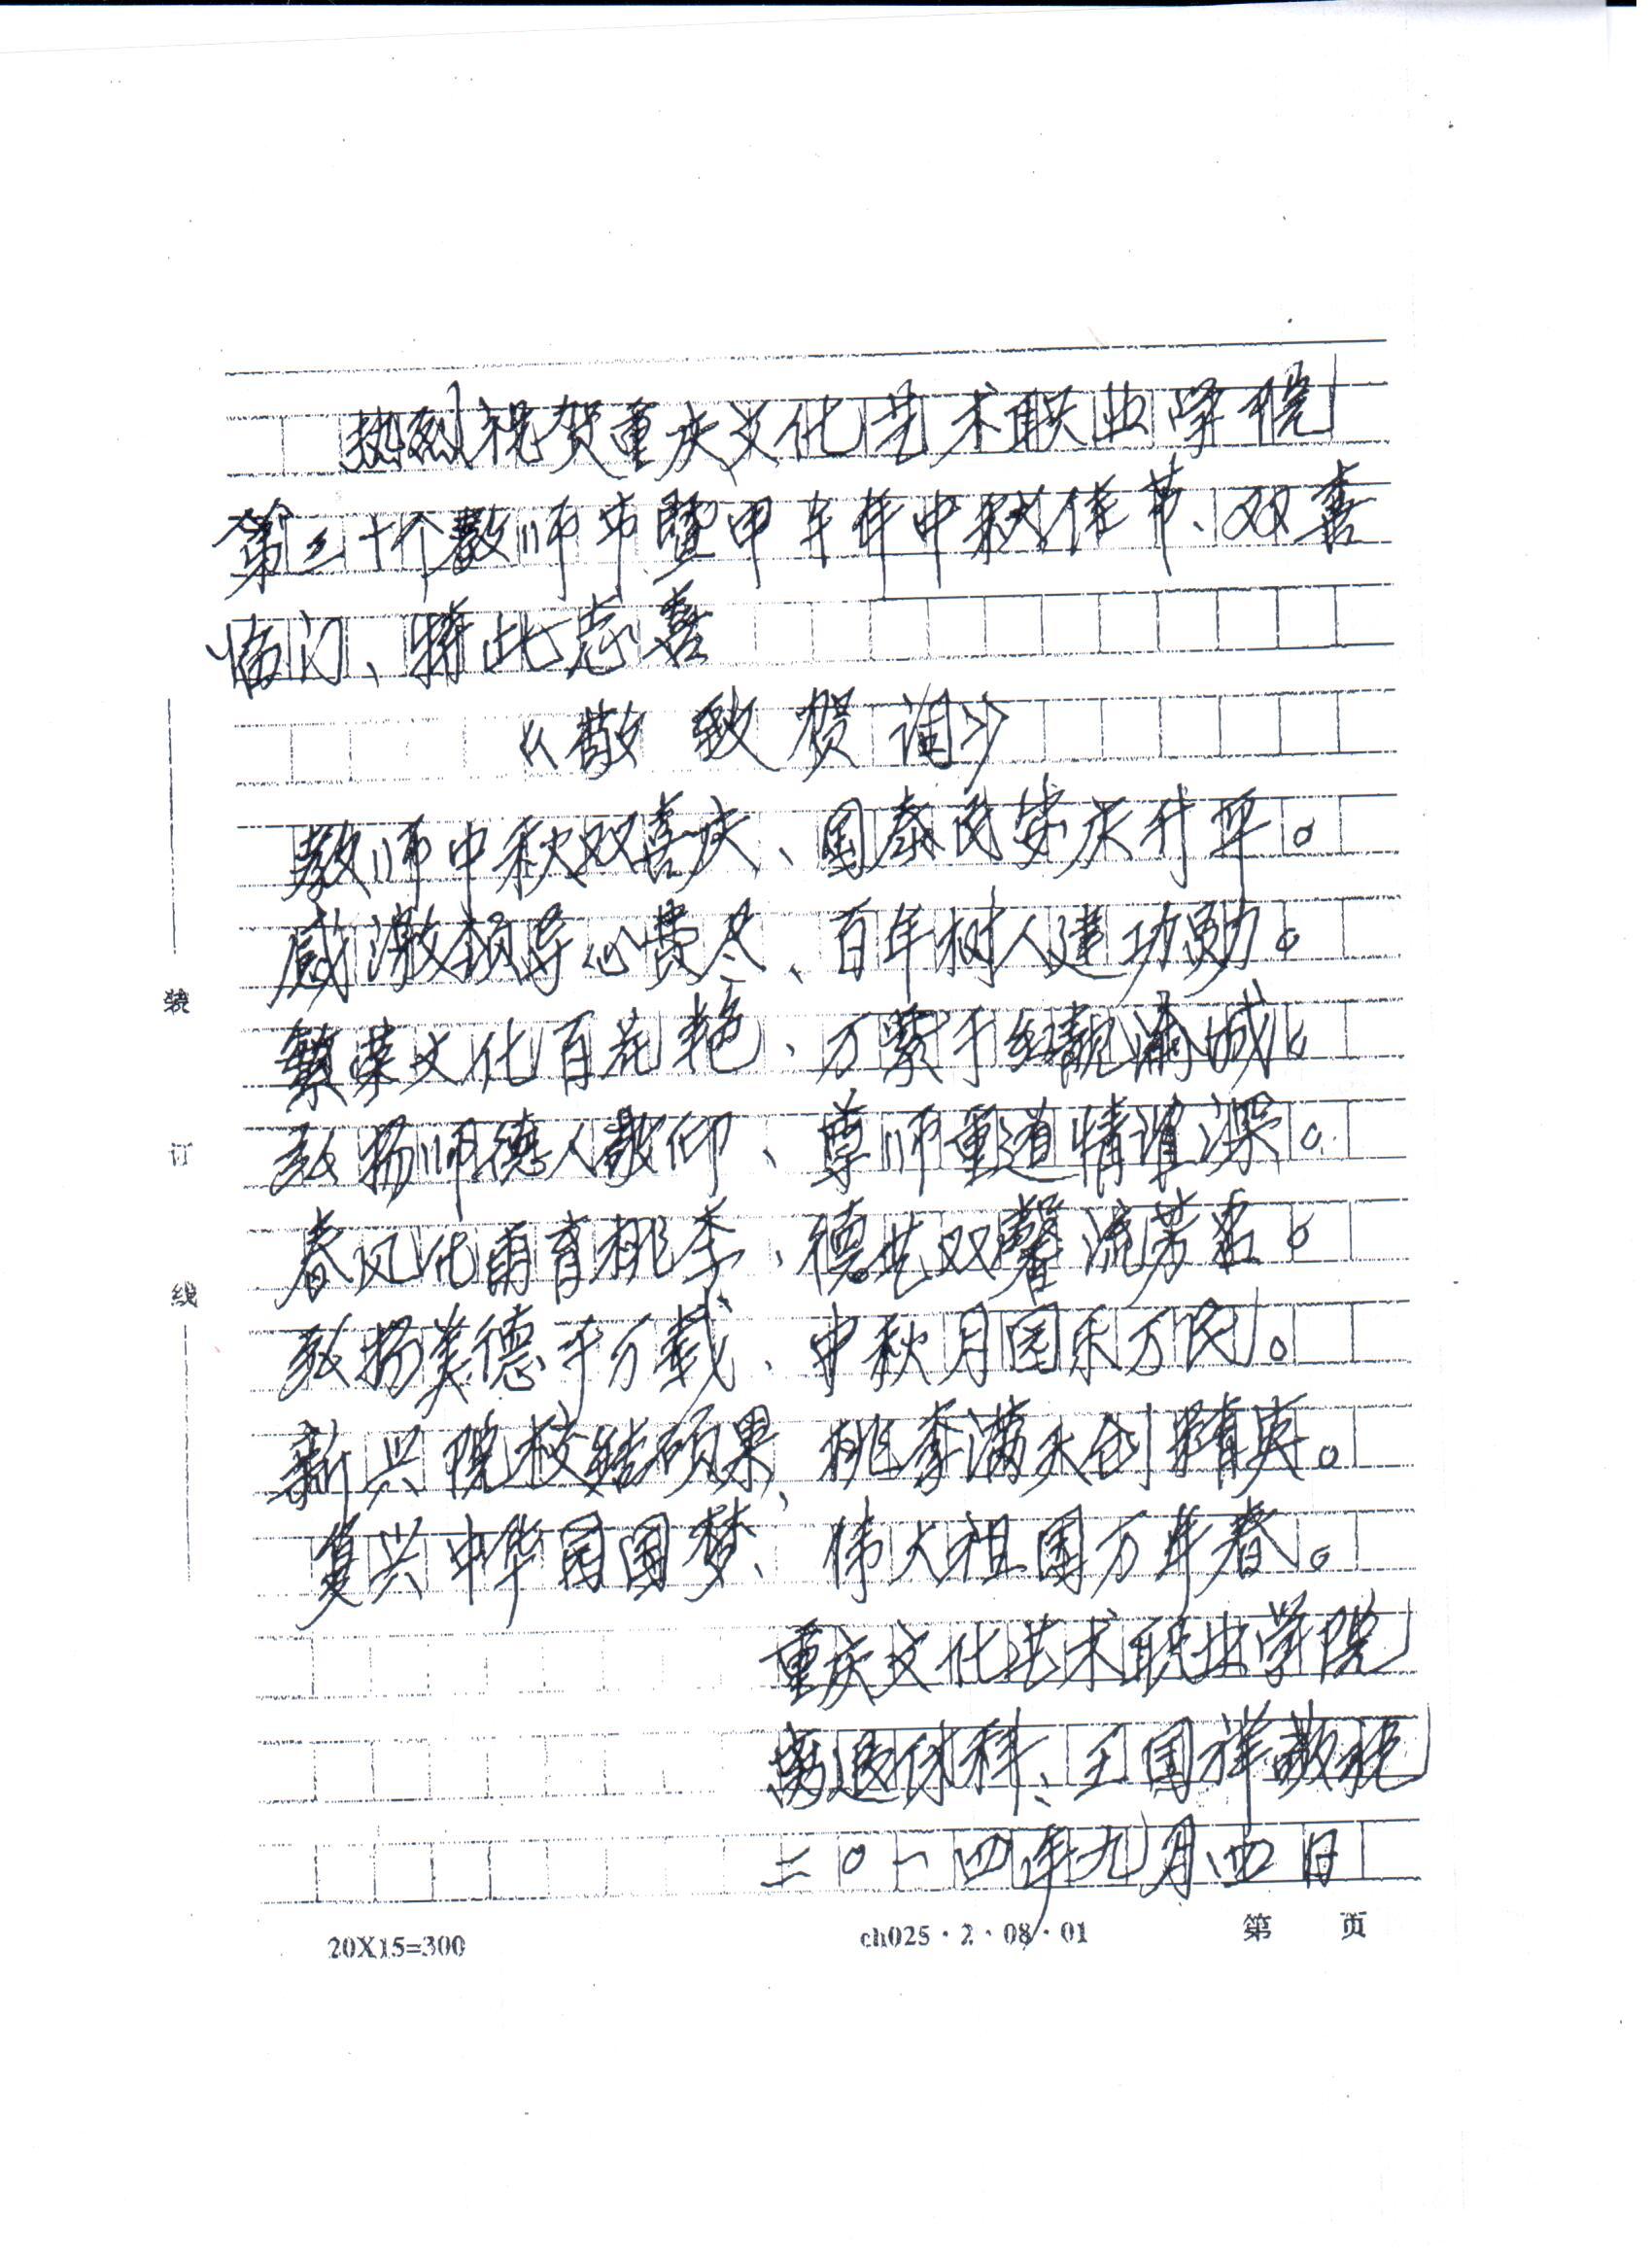 热烈祝贺重庆文化艺术职业学院
第三十个教师节暨甲午年中秋佳节、双喜
临门、特此恭喜
《敬致贺词》
教师中秋双喜庆、国泰民安庆升平。
感激领导心费尽、百年树人建功勋。
繁荣文化百花艳、万紫千红靓渝城。
弘扬师德人敬仰、尊师重道情谊深。
春风化雨育桃李、德艺双馨流芳名。
弘扬美德千万载、中秋月圆乐万民。
新兴院校结硕果、桃李满天创精英。
复兴中华园国梦、伟大祖国万年春。
重庆文化艺术职业学院
离退休科、王国祥敬祝
二〇一四年九月四日
装
订
线
20X15=300
ch025·2·08·01
第 页